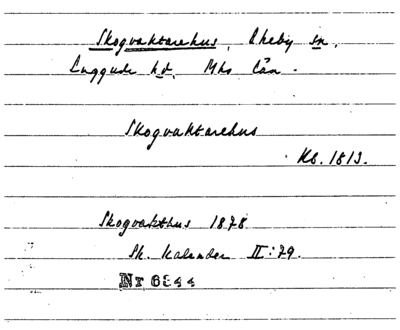 Skogvaktarehus, Ekeby sn,
Luggude hd, Mhs län.
Skogvaktarehus
Kb. 1813.
Skogvakthus 1878
Sk. Kalender II:79.
Nr 6944